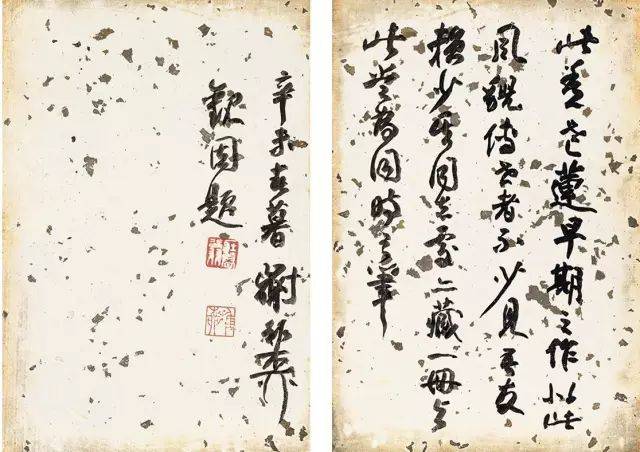 此老蓮早期之作以此
風貌傳世者不少見吾友
賴少其同志處亦藏一冊與
此為同時之筆
辛未春暮謝稚柳
因題